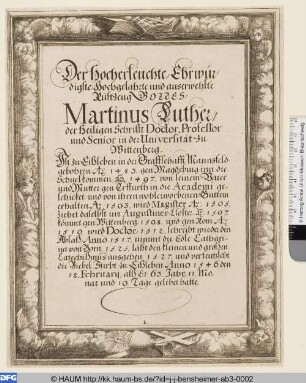 Der Hocherleuchte, Ehrwür-
digste, Hochgelahrte und auserwehlte
Rüstzeug GOTTES,
Martinus Luther,
der Heiligen Schrifft Doctor, Professor
und Senior in der Universität zu
Wittenberg.
Ist zu Eißleben in der Graffschafft Mannsfeld
gebohren A. 1483. gen Magdeburg in die
Schuel kommen A. 1497. von seinem Vater
und Mutter gen Erffurth in die Academi ge-
schicket, und von ihren wohlerworbenen Güttern
erhalten A. 1501. wird Magister A. 1505.
ziehet daselbst ins Augustiner Closter A. 1507.
kömmt gen Wittenberg 1508. und gen Rom A.
1510. wird Doctor 1512. schreibt wieder den
Ablaß Anno 1517. nimmt die Edle Catharina
von Born 1525. leßt den kleinen und großen
Catechismus ausgehen 1527. und verteutscht
die Biebel. Stirbt zu Eißleben Anno 1546 den
18. Februarij, als Er 63. Jahr, 11. Mo-
nat und 10. Tage gelebet hatte.
1.
DFG
© HAUM http://kk.haum-bs.de/?id=j-j-bensheimer-ab3-0002